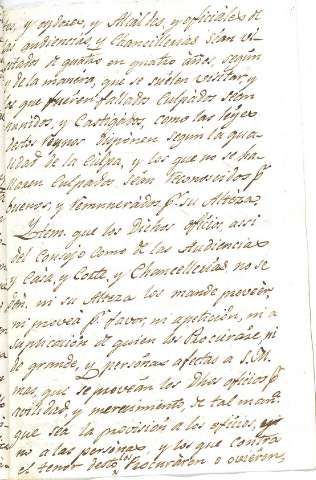 res, y oydores, y Alcaldes, y oficiales de
las audiencias, y Chancillerias sean vi-
sitados de quatro en quatro años, según
de la manera, que se suelen visitar, y
los que fueren fallados Culpados sean
punidos, y Castigados, como las leyes
destos Reynos disponen según la qua-
lidad de la Culpa, y los que no se ha-
llaren Culpados sean reconocidos pr
buenos, y remunerados pr su Alteza.
Item. que los Dichos oficios, assi
del Consejo como de las Audiencias
y Casa, y Corte, y Chancillerias no se
den. ni su Alteza los mande proveer,
ni provea pr favor, ni apetición, ni a
suplicación de quien los Procurare, ni
de grande, y personas afectas a S. M.
mas, que se provean los Dhos oficios pr
avilidad, y merecimiento, de tal manera
que sea la provisión a los oficios, y
no a las personas, y los que contra
el tenor desto los Procuraren o ovieren,